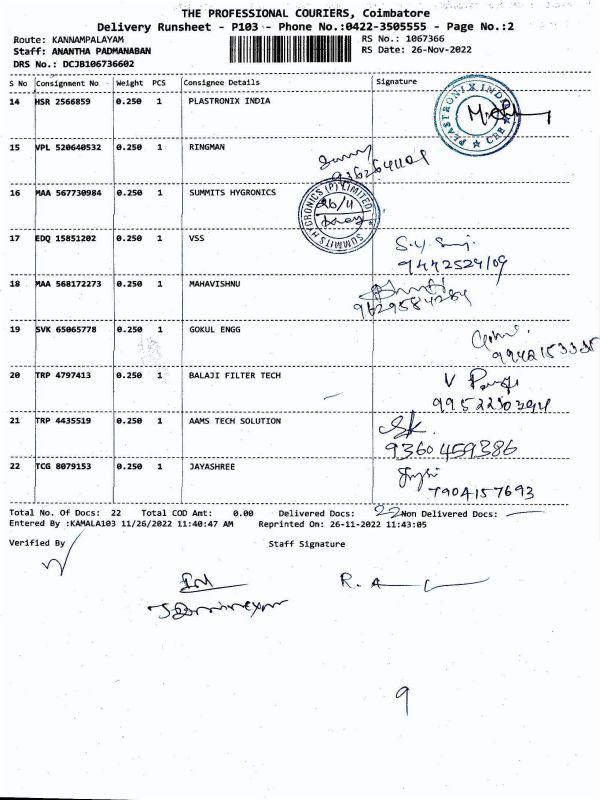 THE PROFESSIONAL COURIERS, Coimbatore
Delivery Runsheet - P103 - Phone No.:0422-3505555 - Page No.:2
Route: KANNAMPALAYAM
RS No.: 1067366
Staff: ANANTHA PADMANABAN
RS Date: 26-Nov-2022
DRS No.: DCJB106736602
S No Consignment No Weight PCS Consignee Details Signature
14 HSR 2566859 0.250 1 PLASTRONIX INDIA
PLASTRONIX INDIA ★ CBE ★
15 VPL 520640532 0.250 1 RINGMAN
9362641101
16 MAA 567730984 0.250 1 SUMMITS HYGRONICS
SUMMITS HYGRONICS (P) LIMITED
26/11
17 EDQ 15851202 0.250 1 VSS
9442524109
18 MAA 568172273 0.250 1 MAHAVISHNU
9629584284
19 SVK 65065778 0.250 1 GOKUL ENGG
9942153335
20 TRP 4797413 0.250 1 BALAJI FILTER TECH
21 TRP 4435519 0.250 1 AAMS TECH SOLUTION
SK
9360459386
22 TCG 8079153 0.250 1 JAYASHREE
7904157693
Total No. Of Docs: 22 Total COD Amt: 0.00 Delivered Docs: 22 Non Delivered Docs:
Entered By :KAMALA103 11/26/2022 11:40:47 AM Reprinted On: 26-11-2022 11:43:05
Verified By Staff Signature
9